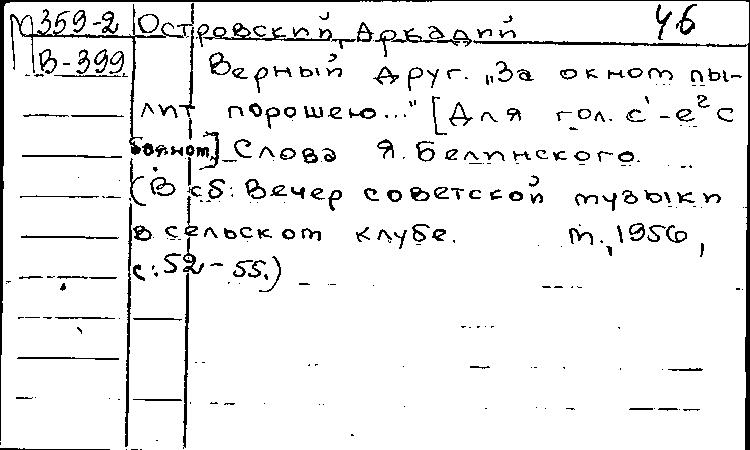 М359-2 Островский, Аркадий 46
В-399 Верный друг. „За окном пы-
лит порошею..." [Для гол. c¹-e² с
баяном] Слова Я. Белинского.
(В сб: Вечер советской музыки
в сельском клубе. М., 1956,
с. 52-55.)